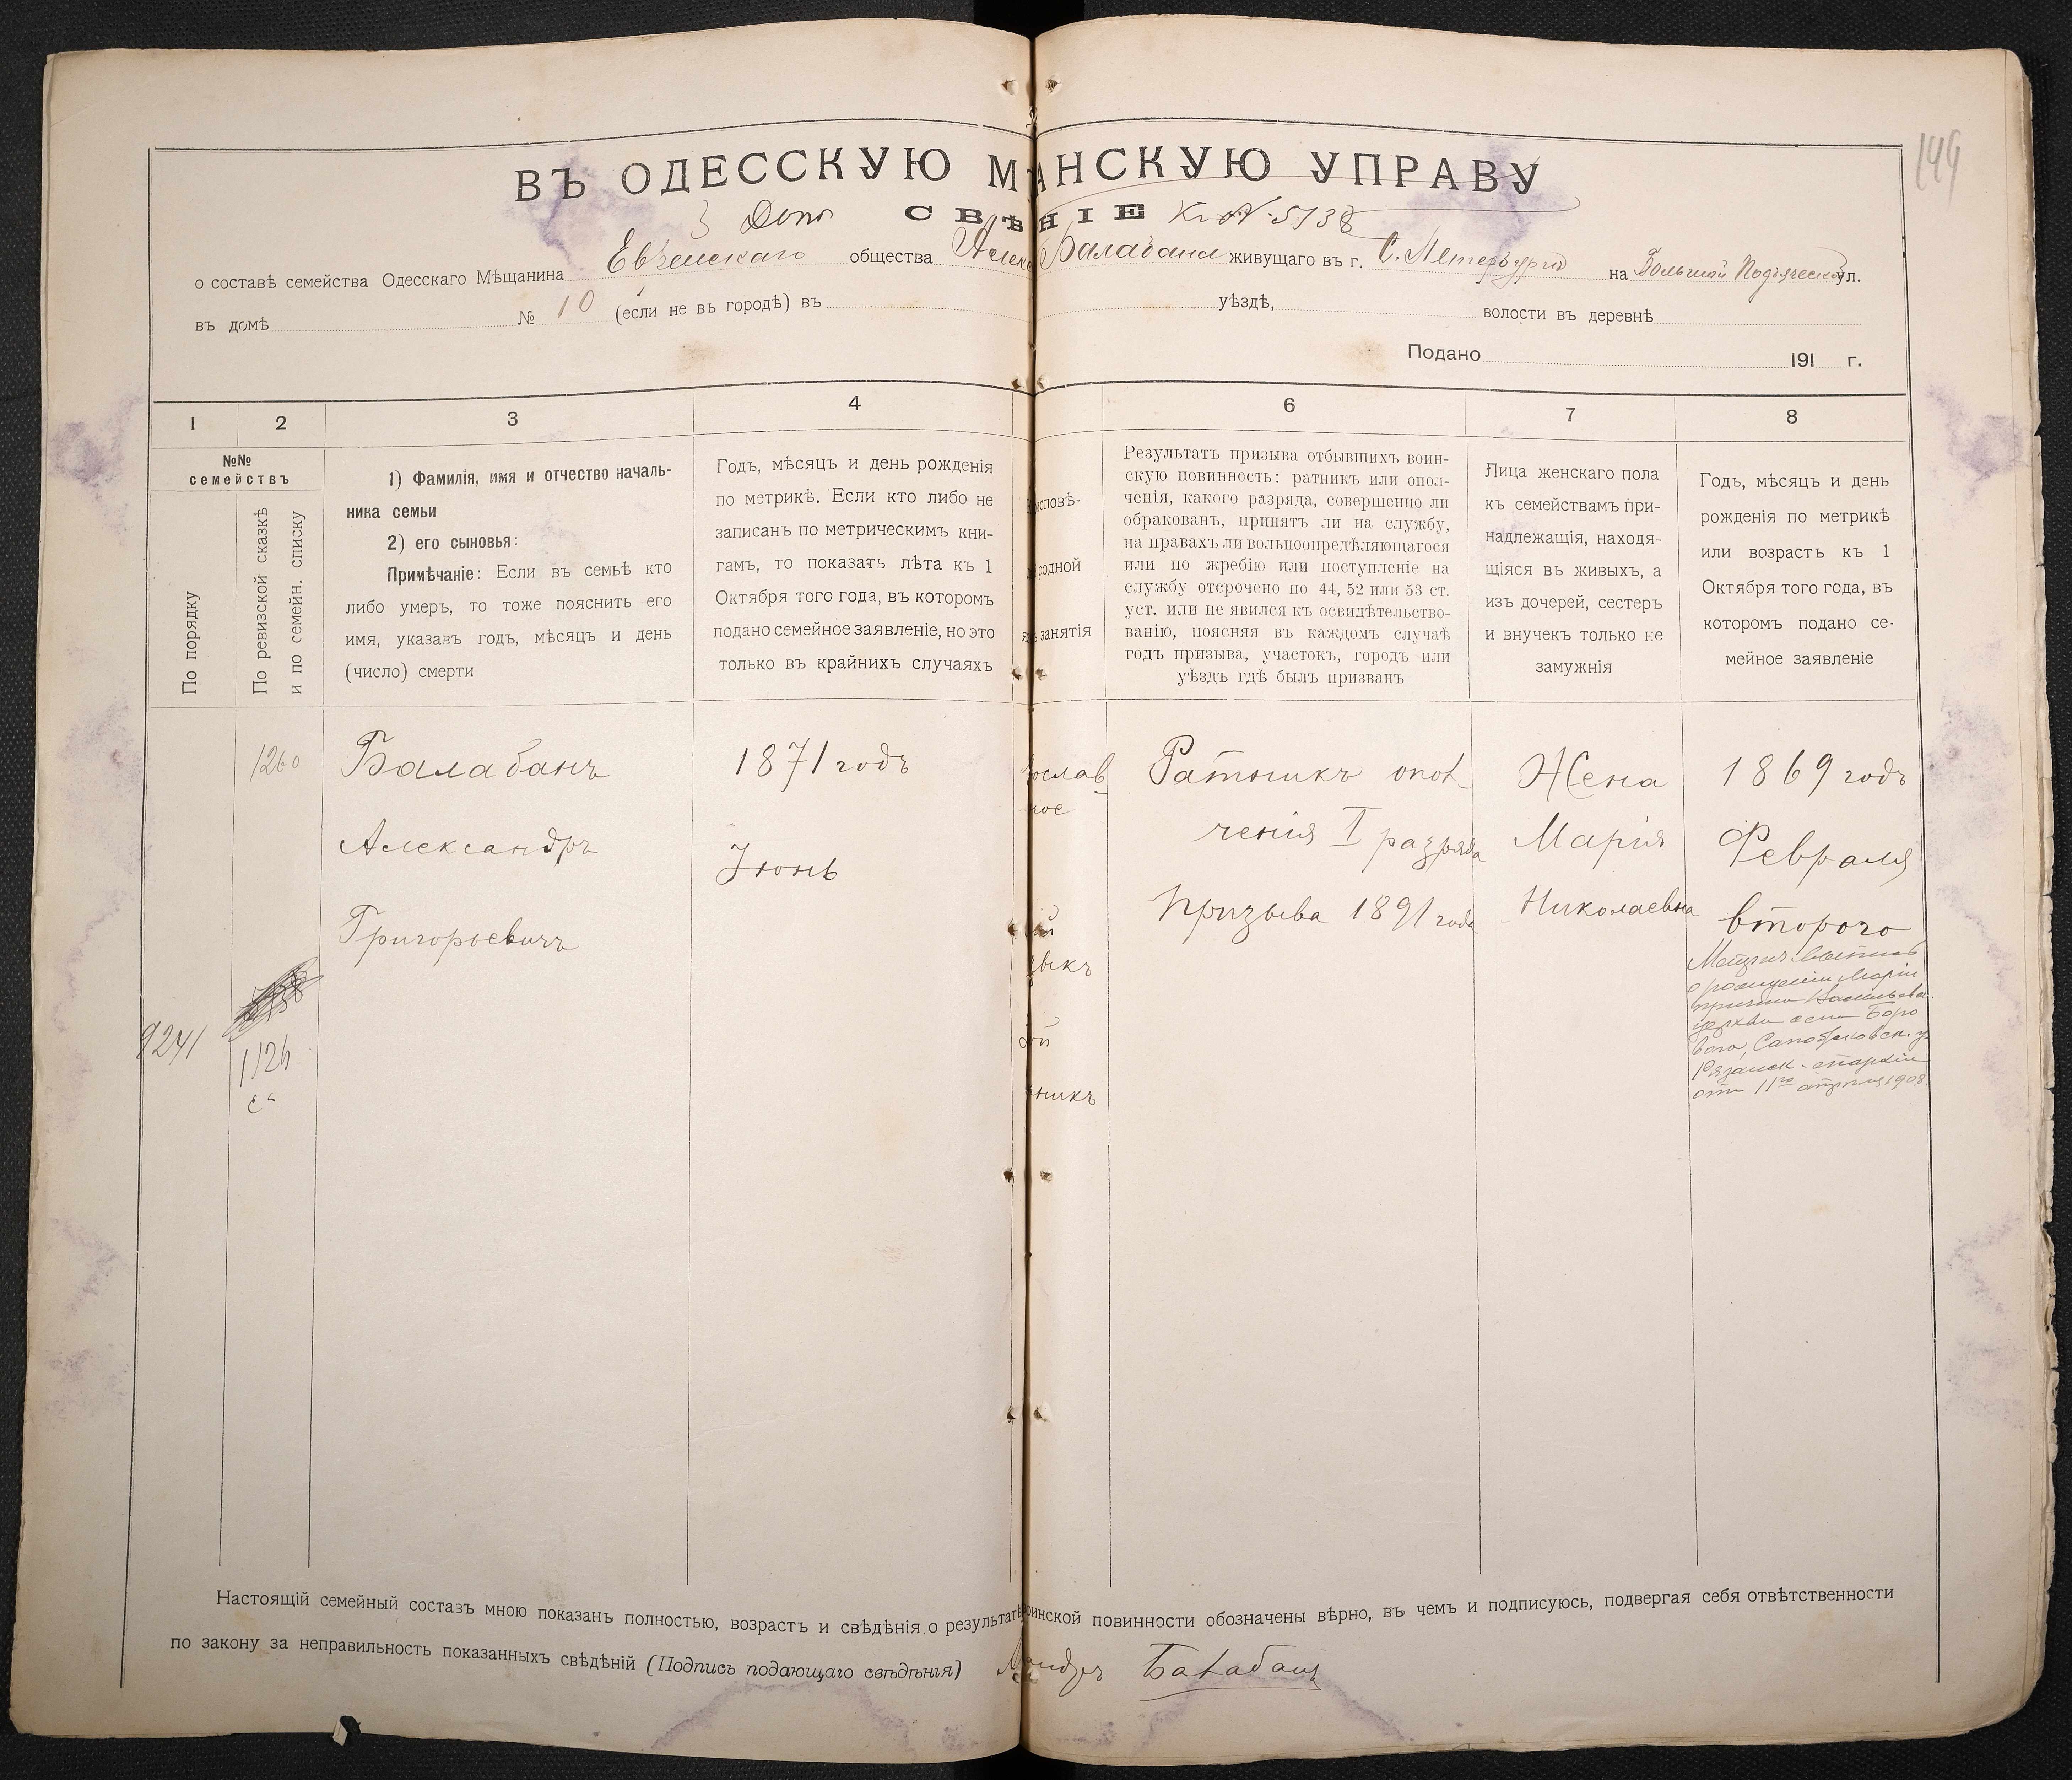 149
ВЪ ОДЕССКУЮ М АНСКУЮ УПРАВУ
СВѢ НІЕ К № 5138
о составѣ семейства Одесскаго Мѣщанина Еврейскаго общества Алекс Балабана живущаго въ г. С. Петербургѣ на Большой Подъяческой ул.
въ домѣ № 10 (если не въ городѣ) въ уѣздѣ, волости въ деревнѣ
Подано 191 г.
1 2 3 4 6 7 8
№№ семействъ
По порядку
По ревизской сказкѣ
и по семейн. списку
1) Фамилія, имя и отчество началь-
ника семьи
2) его сыновья:
Примѣчаніе: Если въ семьѣ кто
либо умеръ, то тоже пояснить его
имя, указавъ годъ, мѣсяцъ и день
(число) смерти
Годъ, мѣсяцъ и день рожденія
по метрикѣ. Если кто либо не
записанъ по метрическимъ кни-
гамъ, то показать лѣта къ 1
Октября того года, въ которомъ
подано семейное заявленіе, но это
только въ крайнихъ случаяхъ
исповѣ-
родной
занятія
Результатъ призыва отбывшихъ воин-
скую повинность: ратникъ или опол-
ченія, какого разряда, совершенно ли
обракованъ, принятъ ли на службу,
на правахъ ли вольноопредѣляющагося
или по жребію или поступленіе на
службу отсрочено по 44, 52 или 53 ст.
уст. или не явился къ освидѣтельство-
ванію, поясняя въ каждомъ случаѣ
годъ призыва, участокъ, городъ или
уѣздъ гдѣ былъ призванъ
Лица женскаго пола
къ семействамъ при-
надлежащія, находя-
щіяся въ живыхъ, а
изъ дочерей, сестеръ
и внучекъ только не
замужнія
Годъ, мѣсяцъ и день
рожденія по метрикѣ
или возрастъ къ 1
Октября того года, въ
которомъ подано се-
мейное заявленіе
9241
1260
1126
Балабанъ
Александръ
Григорьевичъ
1871 годъ
Іюнь
ослав
ное
ій
зыкъ
ой
никъ
Ратникъ опол-
ченія I разряда
Призыва 1891 года
Жена
Марія
Николаевна
1869 годъ
Февраля
второго
о рожденіи Маріи
церкви села Боро
вого, Сапожковск. у.
Рязанск. епархіи
отъ 11го апрѣля 1908
Настоящій семейный составъ мною показанъ полностью, возрастъ и свѣдѣнія о результатѣ воинской повинности обозначены вѣрно, въ чемъ и подписуюсь, подвергая себя отвѣтственности
по закону за неправильность показанныхъ свѣдѣній (Подпись подающаго свѣдѣнія) андръ Балабанъ